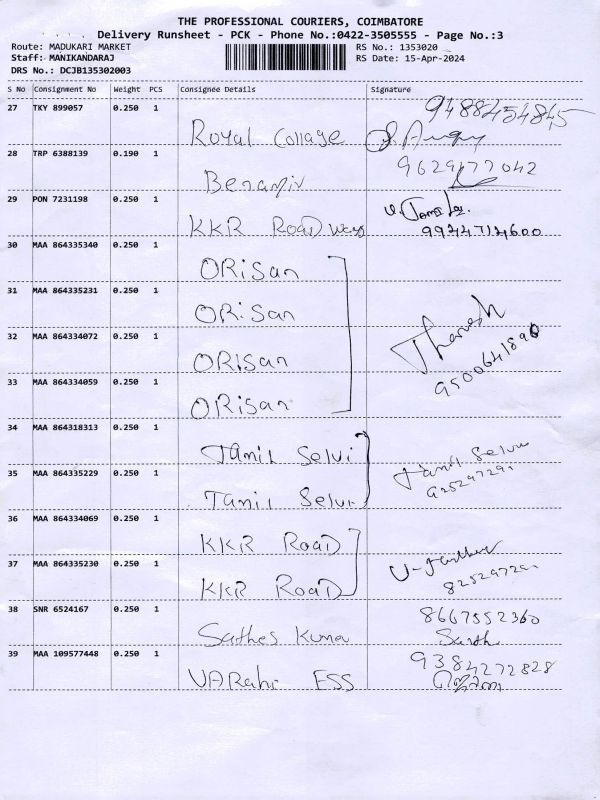 THE PROFESSIONAL COURIERS, COIMBATORE
Delivery Runsheet - PCK - Phone No.:0422-3505555 - Page No.:3
Route: MADUKARI MARKET RS No.: 1353020
Staff: MANIKANDARAJ RS Date: 15-Apr-2024
DRS No.: DCJB135302003
S No Consignment No Weight PCS Consignee Details Signature
27 TKY 899057 0.250 1 Royal Collage 9488454845
28 TRP 6388139 0.190 1 Benamin 9629177042
29 PON 7231198 0.250 1 KKR Road ways 9944714600
30 MAA 864335340 0.250 1 ORiSan
31 MAA 864335231 0.250 1 ORiSan
32 MAA 864334072 0.250 1 ORISan Thanesh
33 MAA 864334059 0.250 1 ORISan 9500641890
34 MAA 864318313 0.250 1 Tamil Selvi Tamil Selvi
35 MAA 864335229 0.250 1 Tamil Selvi
36 MAA 864334069 0.250 1 KKR Road
37 MAA 864335230 0.250 1 KKR Road
38 SNR 6524167 0.250 1 Sathes Kuma 8667552360
39 MAA 109577448 0.250 1 VARahi ESS 9384272828